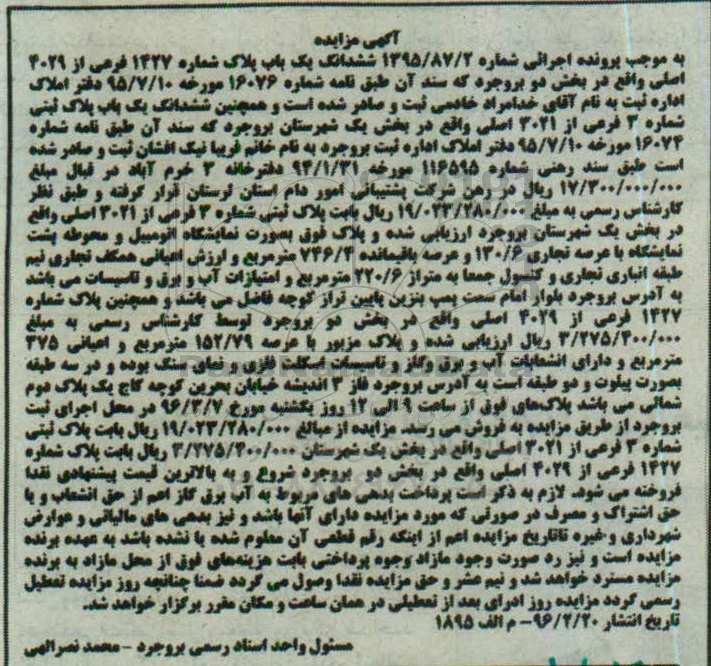 آگهی مزایده
به موجب پرونده اجرائی شماره ۱۳۹۵/۸۷/۲ ششدانگ یک باب پلاک شماره ۱۴۲۷ فرعی از ۴۰۲۹
اصلی واقع در بخش دو بروجرد که سند آن طبق نامه شماره ۱۶۰۷۶ مورخه ۹۵/۷/۱۰ دفتر املاک
اداره ثبت به نام آقای خدامراد خادمی ثبت و صادر شده است و همچنین ششدانگ یک باب پلاک ثبتی
شماره ۳ فرعی از ۳۰۲۱ اصلی واقع در بخش یک شهرستان بروجرد که سند آن طبق نامه شماره
۱۶۰۷۴ مورخه ۹۵/۷/۱۰ دفتر املاک اداره ثبت بروجرد به نام خانم فریبا نیک افشان ثبت و صادر شده
است طبق سند رهنی شماره ۱۱۶۵۹۵ مورخه ۹۴/۱/۳۱ دفترخانه ۳ خرم آباد در قبال مبلغ
۱۷/۳۰۰/۰۰۰/۰۰۰ ریال در رهن شرکت پشتیبانی امور دام استان لرستان قرار گرفته و طبق نظر
کارشناس رسمی به مبلغ ۱۹/۰۲۳/۲۸۰/۰۰۰ ریال بابت پلاک ثبتی شماره ۳ فرعی از ۳۰۲۱ اصلی واقع
در بخش یک شهرستان بروجرد ارزیابی شده و پلاک فوق بصورت نمایشگاه اتومبیل و محوطه پشت
نمایشگاه با عرصه تجاری ۱۳۰/۶ و عرصه باقیمانده ۷۴۶/۴ مترمربع و ارزش اعیانی همکف تجاری نیم
طبقه انباری تجاری و کنسول جمعا به متراژ ۲۲۰/۶ مترمربع و امتیازات آب و برق و تاسیسات می باشد
به آدرس بروجرد بلوار امام سمت پمپ بنزین پایین تراز کوچه فاضل می باشد و همچنین پلاک شماره
۱۴۲۷ فرعی از ۴۰۲۹ اصلی واقع در بخش دو بروجرد توسط کارشناس رسمی به مبلغ
۳/۲۷۵/۴۰۰/۰۰۰ ریال ارزیابی شده و پلاک مزبور با عرصه ۱۵۲/۷۹ مترمربع و اعیانی ۳۷۵
مترمربع و دارای انشعابات آب و برق وگاز و تاسیسات اسکلت فلزی و نمای سنگ بوده و در سه طبقه
بصورت پیلوت و دو طبقه است به آدرس بروجرد فاز ۳ اندیشه خیابان بحرین کوچه کاج یک پلاک دوم
شمالی می باشد پلاک‌های فوق از ساعت ۹ الی ۱۲ روز یکشنبه مورخ ۹۶/۳/۷ در محل اجرای ثبت
بروجرد از طریق مزایده به فروش می رسد. مزایده از مبالغ ۱۹/۰۲۳/۲۸۰/۰۰۰ ریال بابت پلاک ثبتی
شماره ۳ فرعی از ۳۰۲۱ اصلی واقع در بخش یک شهرستان ۳/۲۷۵/۴۰۰/۰۰۰ ریال بابت پلاک شماره
۱۴۲۷ فرعی از ۴۰۲۹ اصلی واقع در بخش دو بروجرد شروع و به بالاترین قیمت پیشنهادی نقدا
فروخته می شود. لازم به ذکر است پرداخت بدهی های مربوط به آب برق گاز اعم از حق انشعاب و یا
حق اشتراک و مصرف در صورتی که مورد مزایده دارای آنها باشد و نیز بدهی های مالیاتی و عوارض
شهرداری و غیره تاتاریخ مزایده اعم از اینکه رقم قطعی آن معلوم شده یا نشده باشد به عهده برنده
مزایده است و نیز ره صورت وجود مازاد وجوه پرداختی بابت هزینه‌های فوق از محل مازاد به برنده
مزایده مسترد خواهد شد و نیم عشر و حق مزایده نقدا وصول می گردد ضمنا چنانچه روز مزایده تعطیل
رسمی گردد مزایده روز ادرای بعد از تعطیلی در همان ساعت و مکان مقرر برگزار خواهد شد.
تاریخ انتشار ۹۶/۲/۲۰- م الف ۱۸۹۵
مسئول واحد اسناد رسمی بروجرد -محمد نصرالهی